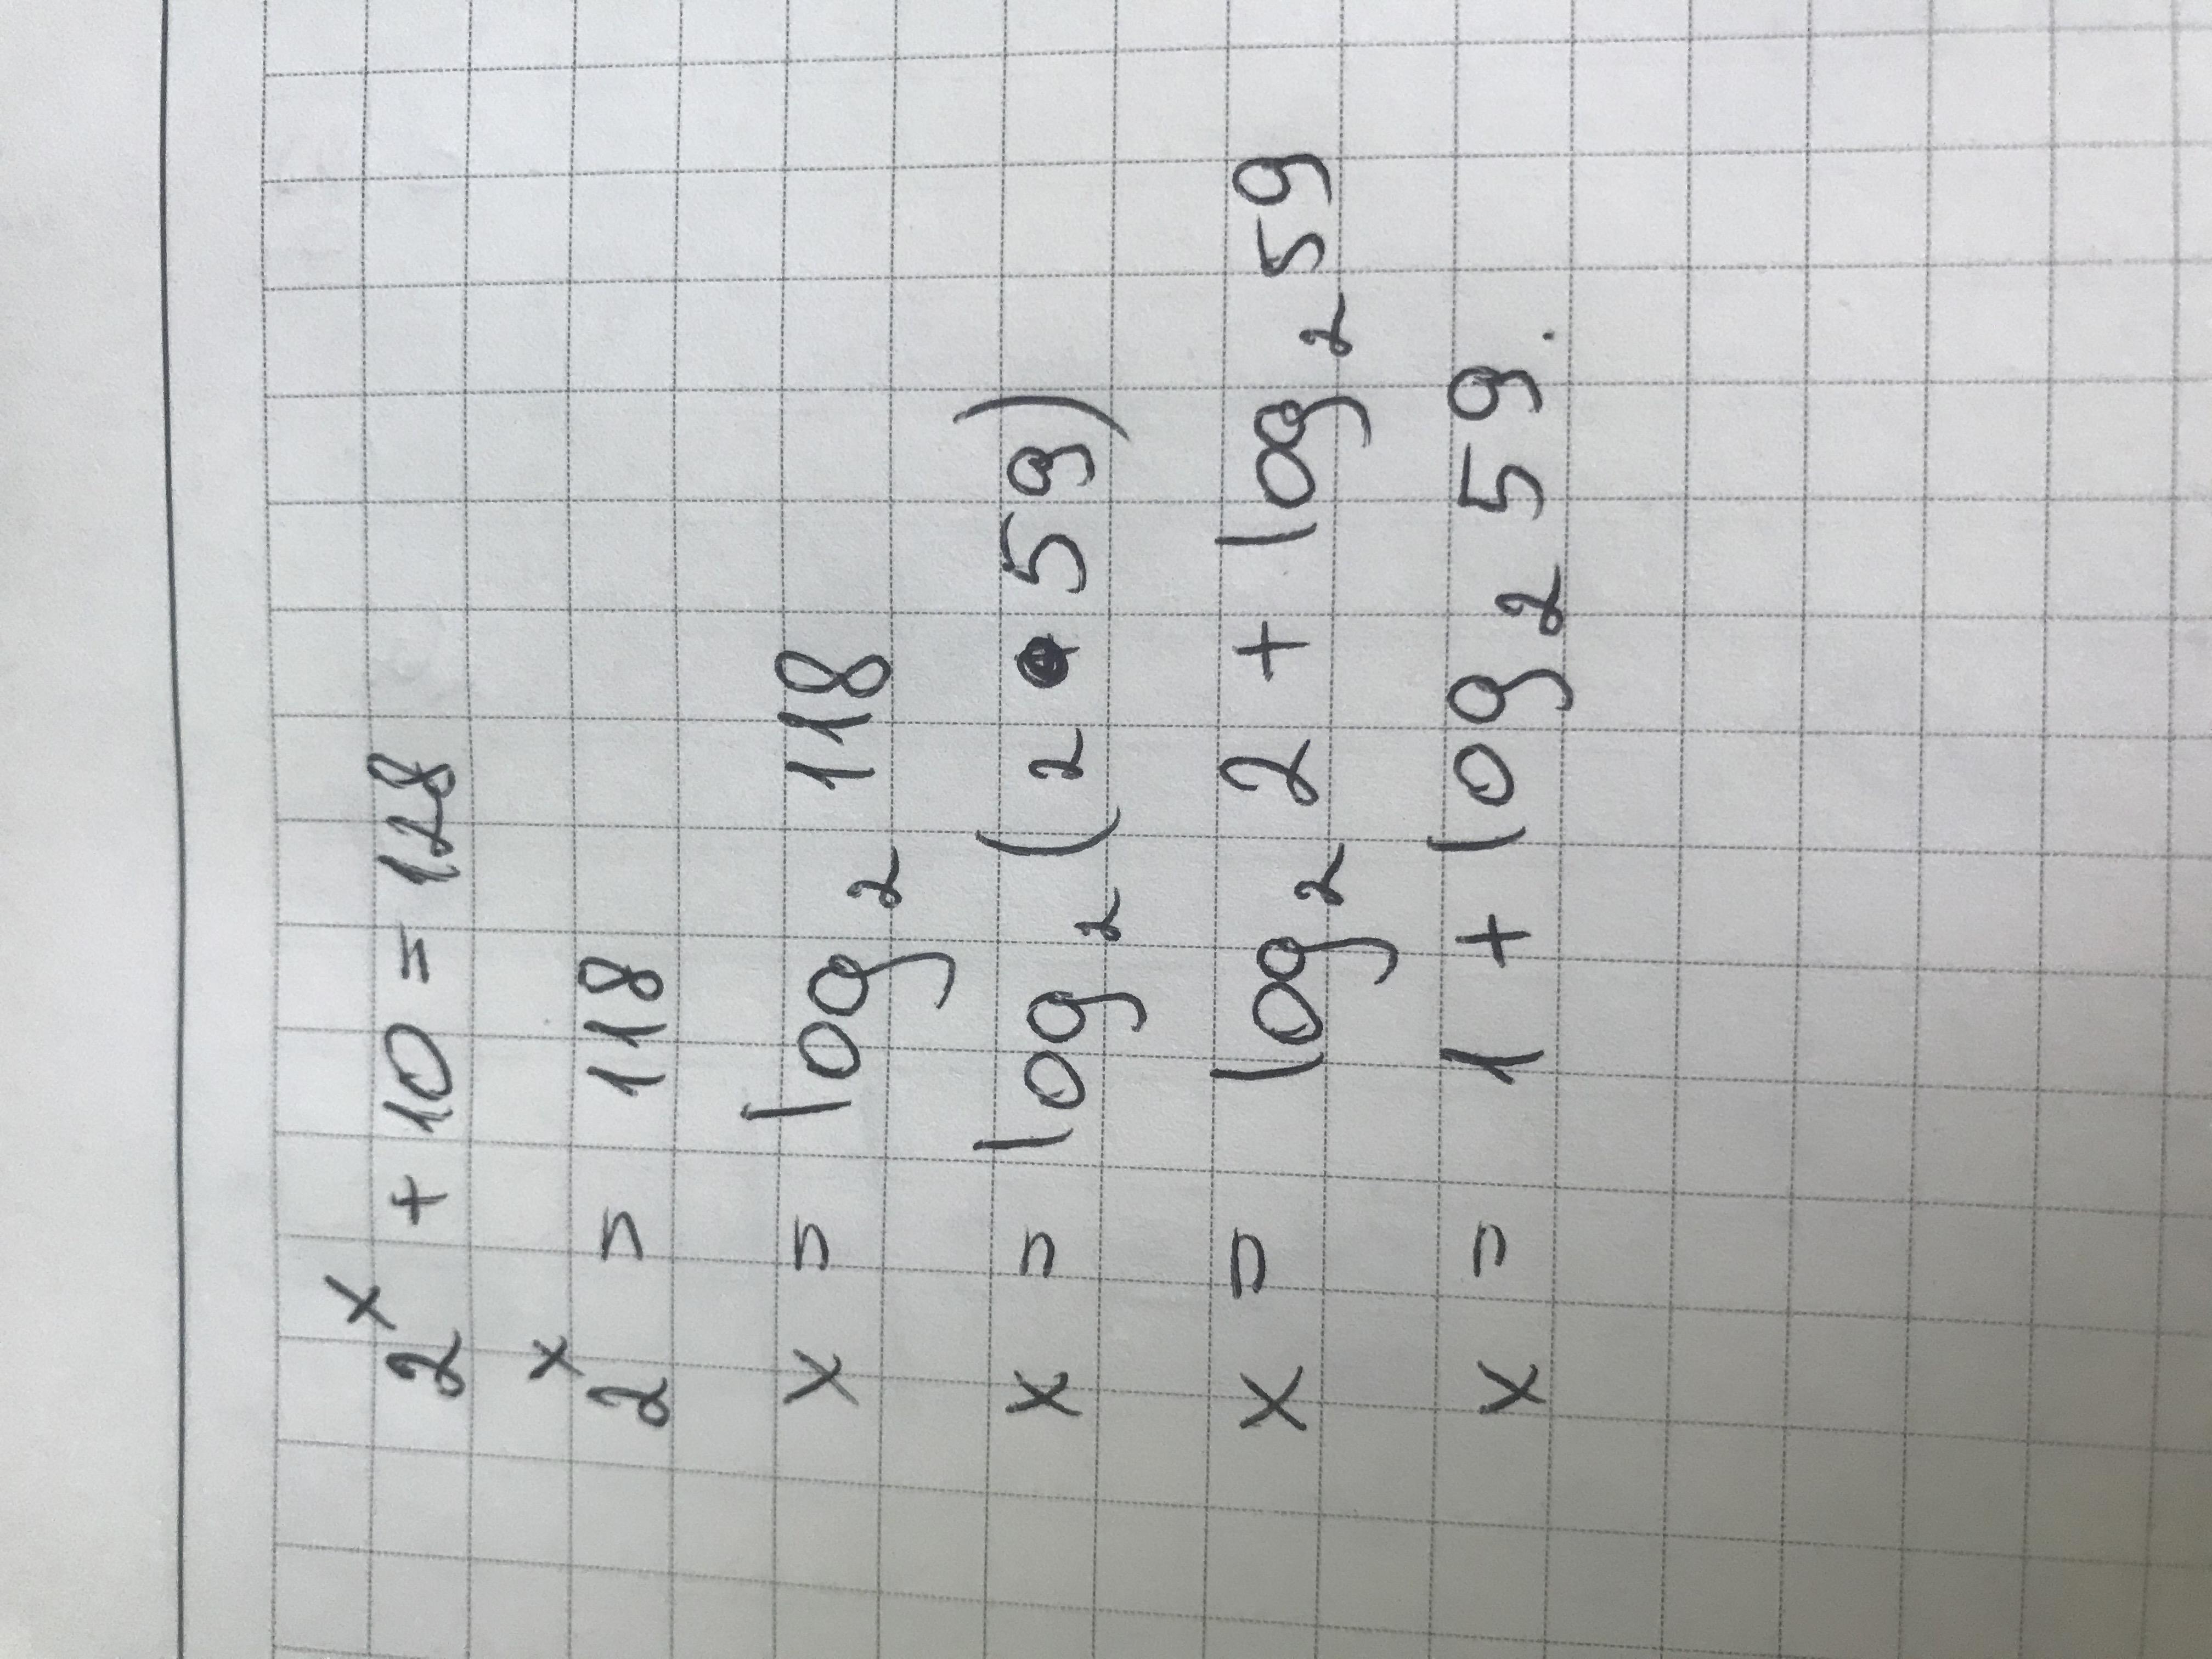 2ˣ + 10 = 128
2ˣ = 118
x = log₂ 118
x = log₂ (2 • 59)
x = log₂ 2 + log₂ 59
x = 1 + log₂ 59.